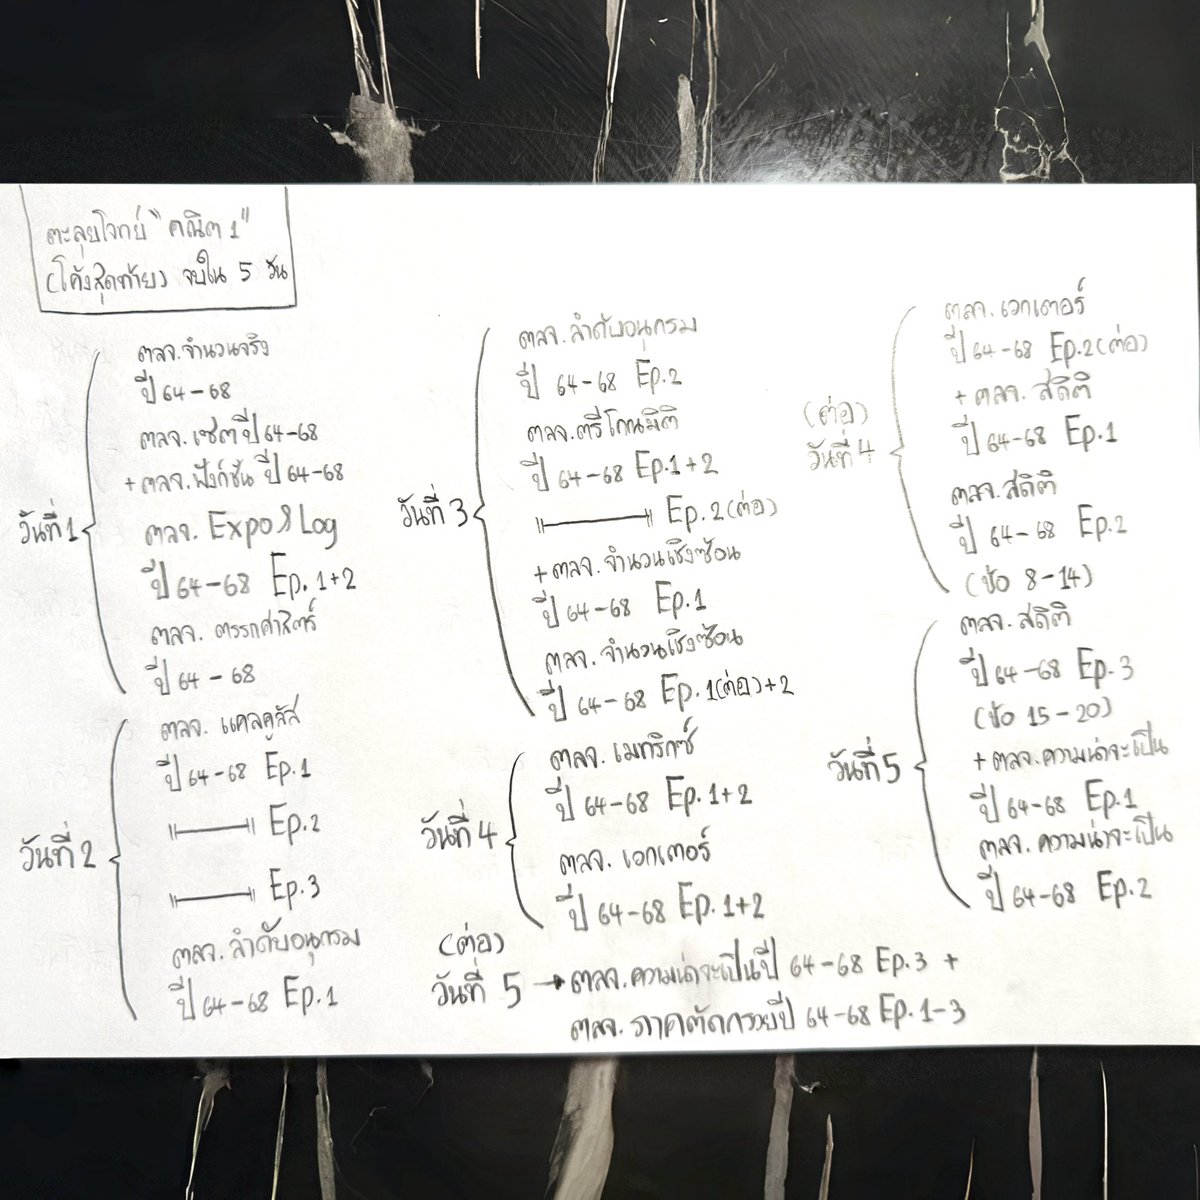 ตะลุยโจทย์ "คณิต 1"
(โค้งสุดท้าย) จบใน 5 วัน
วันที่ 1
ตลจ.จำนวนจริง
ปี 64-68
ตลจ.เซตปี 64-68
+ ตลจ.ฟังก์ชัน ปี 64-68
ตลจ. Expo & Log
ปี 64-68 Ep. 1+2
ตลจ. ตรรกศาสตร์
ปี 64-68
วันที่ 2
ตลจ. แคลคูลัส
ปี 64-68 Ep.1
"———" Ep.2
"———" Ep.3
ตลจ. ลำดับอนุกรม
ปี 64-68 Ep.1
วันที่ 3
ตลจ.ลำดับอนุกรม
ปี 64-68 Ep.2
ตลจ.ตรีโกณมิติ
ปี 64-68 Ep.1+2
"———" Ep.2(ต่อ)
+ ตลจ.จำนวนเชิงซ้อน
ปี 64-68 Ep.1
ตลจ. จำนวนเชิงซ้อน
ปี 64-68 Ep.1(ต่อ)+2
วันที่ 4
ตลจ. เมทริกซ์
ปี 64-68 Ep.1+2
ตลจ. เวกเตอร์
ปี 64-68 Ep.1+2
(ต่อ)
วันที่ 4
ตลจ.เวกเตอร์
ปี 64-68 Ep.2(ต่อ)
+ ตลจ. สถิติ
ปี 64-68 Ep.1
ตลจ.สถิติ
ปี 64-68 Ep.2
(ข้อ 8-14)
วันที่ 5
ตลจ. สถิติ
ปี 64-68 Ep.3
(ข้อ 15-20)
+ ตลจ.ความน่าจะเป็น
ปี 64-68 Ep.1
ตลจ. ความน่าจะเป็น
ปี 64-68 Ep.2
(ต่อ)
วันที่ 5 → ตลจ.ความน่าจะเป็นปี 64-68 Ep.3 +
ตลจ. ภาคตัดกรวยปี 64-68 Ep. 1-3